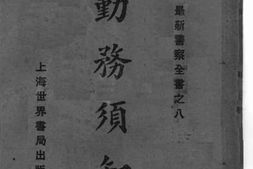 最新警察全書之八
勤務須知
上海世界書局出版